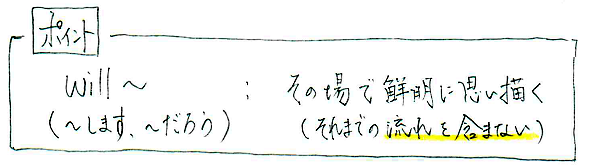 ポイント
Will ～ : その場で鮮明に思い描く
(～します、～だろう) (それまでの流れを含まない)